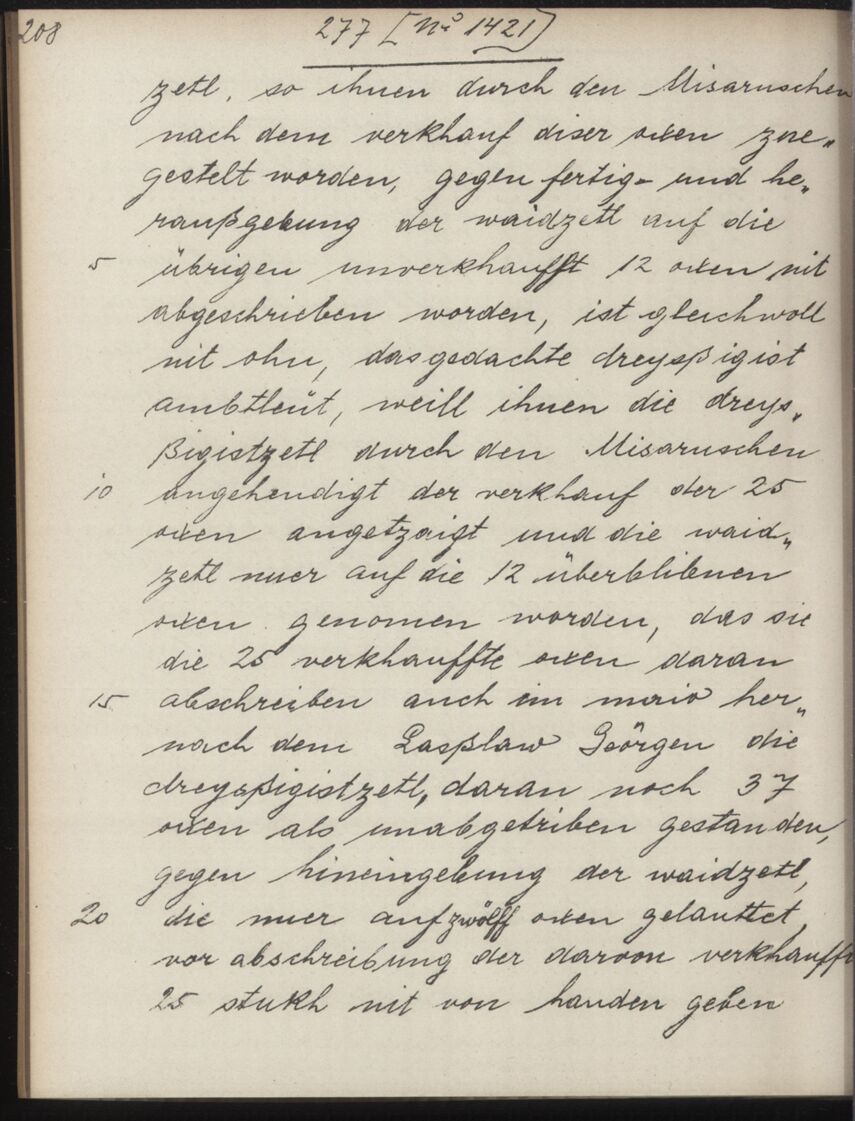 208
277 [No 1421]
zetl, so ihnen durch den Misaruschen
nach dem verkhauf diser oxen zue„
gestelt worden, gegen fertig- und he„
raußgebung der waidzetl auf die
5 übrigen unverkhaufft 12 oxen nit
abgeschrieben worden, ist gleichwoll
nit ohn, das gedachte dreysßigist
ambtleüt, weill ihnen die dreys„
ßigistzetl durch den Misaruschen
10 angehendigt der verkhauf der 25
oxen angetzaigt und die waid„
zetl nuer auf die 12 überblibenen
oxen genomen worden, das sie
die 25 verkhauffte oxen daran
15 abschreiben auch im mario her„
nach dem Laßlaw Geörgen die
dreysßigistzetl, daran noch 37
oxen als unabgetriben gestanden,
gegen hineingebung der waidzetl,
20 die nuer auf zwölff oxen gelauttet,
vor abschreibung der darvon verkhauffte
25 stukh nit von handen geben